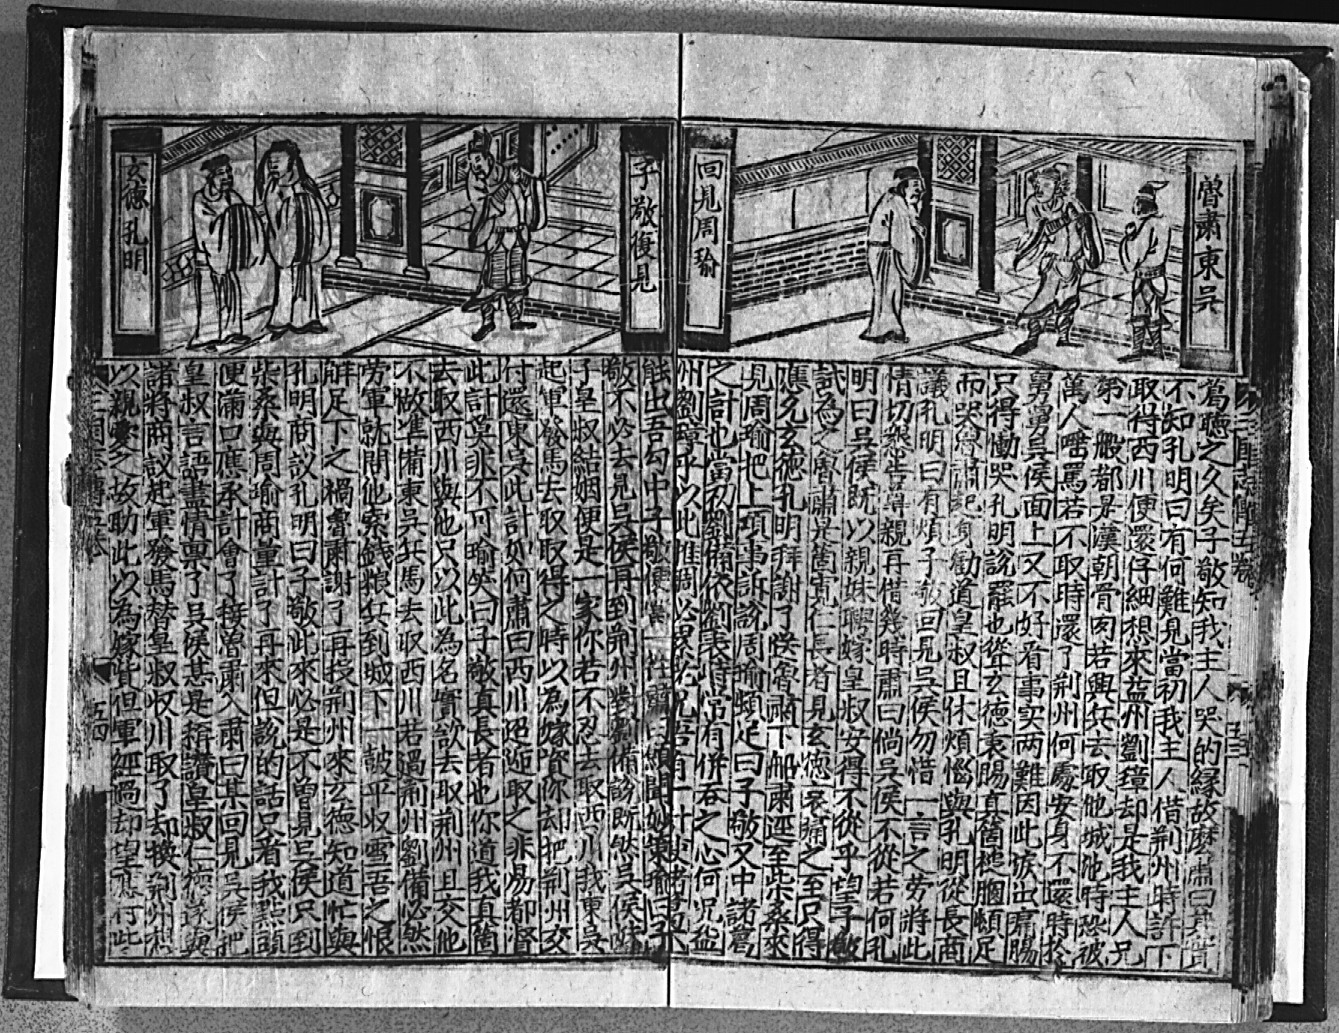 魯肅東吳
回見周瑜
為聽之久矣子敬知我主人哭的緣故麼肅曰其實
不知孔明曰有何難見當初我主人借荆州時許下
取得西川便還仔細想來益州劉璋却是我主人兄
第一般都是漢朝骨肉若興兵去取他城池時恐被
萬人唾罵若不取時還了荆州何處安身不還時於
舅舅吳侯面上又不好看事实两難因此淚出痛腸
只得慟哭孔明說罷也聳玄德衷腸真箇搥胸頓足
而哭魯肅起身勸道皇叔且休煩惱與孔明從長商
議孔明曰有煩子敬回見吳侯勿惜一言之劳將此
情切懇告尊親再借幾時肅曰倘吳侯不從若何孔
明曰吳侯既以親妹聘嫁皇叔安得不從乎望子敬
試為之魯肅是箇寬仁長者見玄德哀痛之至只得
應允玄德孔明拜謝了候魯肅下船肅逕至柴桑來
見周瑜把上項事訴說周瑜頓足曰子敬又中諸葛
之計也當初劉備依劉表時常有併吞之心何况益
州劉璋乎以此推調必累老兄吾有一計使諸葛不
子敬復見
玄德孔明
能出吾勾中子敬便當一行肅曰願聞妙策瑜曰子
敬不必去見吳侯再到荆州對劉備說既然吳侯妹
子皇叔結姻便是一家你若不忍去取西川我東吳
起軍發馬去取取得之時以為嫁資你却把荆州交
付還東吳此計如何肅曰西川迢遞取之非易都督
此計莫非不可瑜笑曰子敬真長者也你道我真箇
去取西川與他只以此為名實欲去取荆州且交他
不做准備東吳兵馬去取西川若過荆州劉備必然
劳軍就問他索錢粮兵到城下一皷平収雪吾之恨
解足下之禍魯肅謝了再投荆州來玄德知道忙與
孔明商议孔明曰子敬此來必是不曾見吳侯只到
柴桑與周瑜商量計了再來但說的話只看我點頭
便滿口應承計會了接魯肅入肅曰某回見吳侯把
皇叔言語盡情禀了吳侯甚是稱讚皇叔仁德遂與
諸將商议起軍發馬替皇叔収川取了却換荆州想
以親愛之故助此以為嫁貲但軍經過却望應付此